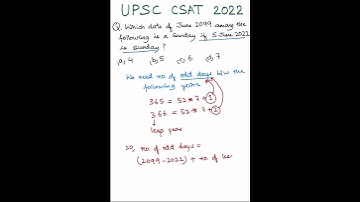 UPSC CSAT 2022
Q. Which date of June 2099 among the
following is a Sunday if 5 June 2022
is Sunday?
a) 4 b) 5 c) 6 d) 7
We need no. of odd days b/w the
following years
365 = 52*7+1
366 = 52*7+2
leap year
So, no. of odd days =
(2099-2022) + no. of le